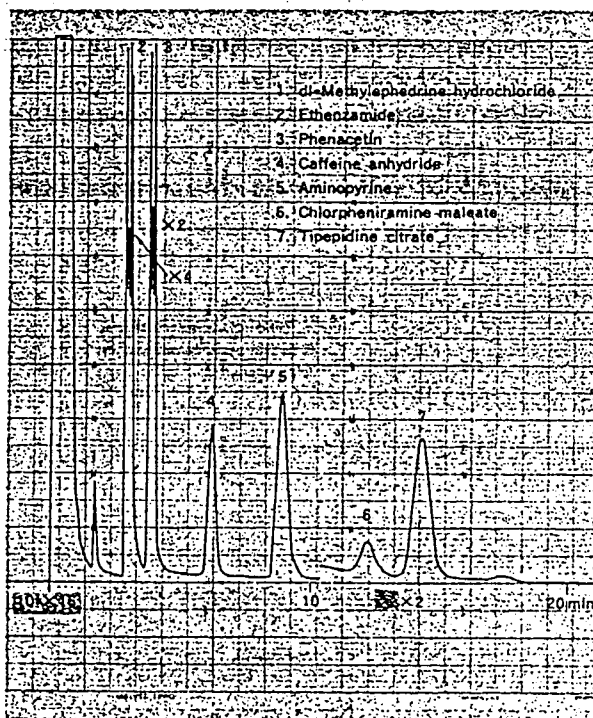 2 3
1. dl-Methylephedrine hydrochloride
2. Ethenzamide
3. Phenacetin
4. Caffeine anhydride
5. Aminopyrine
6. Chlorpheniramine maleate
7. Tipepidine citrate
×2
×4
5
4
7
1
6
10 ×2 20 min